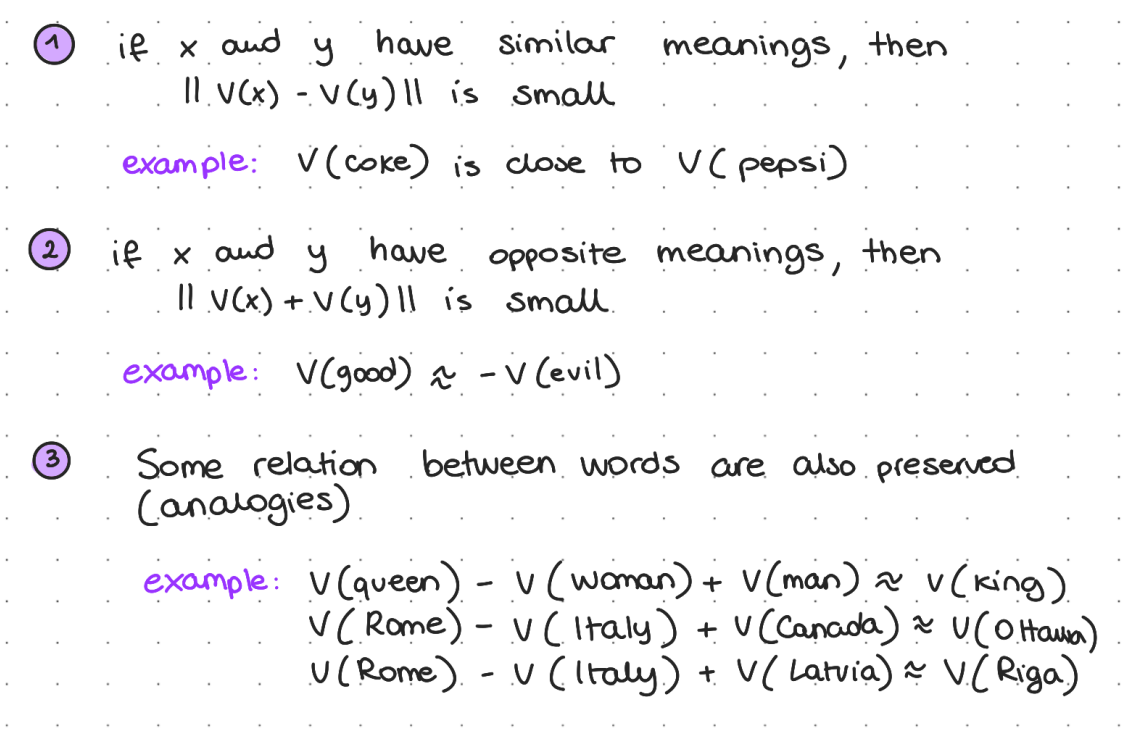 1 if x and y have similar meanings, then
|| V(x) - V(y) || is small
example: V(coke) is close to V(pepsi)
2 if x and y have opposite meanings, then
|| V(x) + V(y) || is small
example: V(good) ≈ - V(evil)
3 Some relation between words are also preserved
(analogies)
example: V(queen) - V(woman) + V(man) ≈ V(king)
V(Rome) - V(Italy) + V(Canada) ≈ V(Ottawa)
V(Rome) - V(Italy) + V(Latvia) ≈ V(Riga)